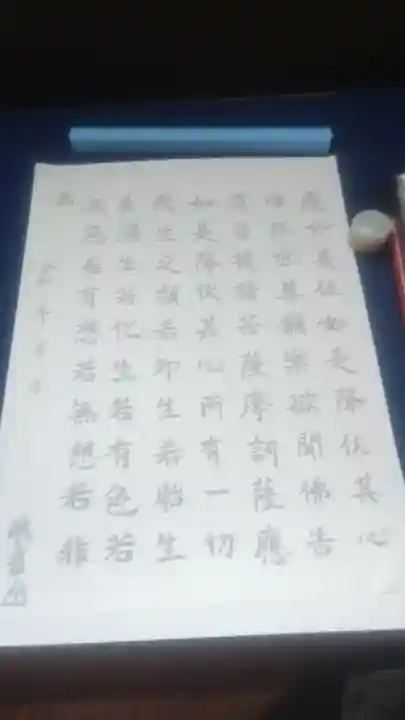 應如是住如是降伏其心
唯然世尊願樂欲聞佛告
須菩提諸菩薩摩訶薩應
如是降伏其心所有一切
眾生之類若卵生若胎生
若濕生若化生若有色若
無色若有想若無想若非